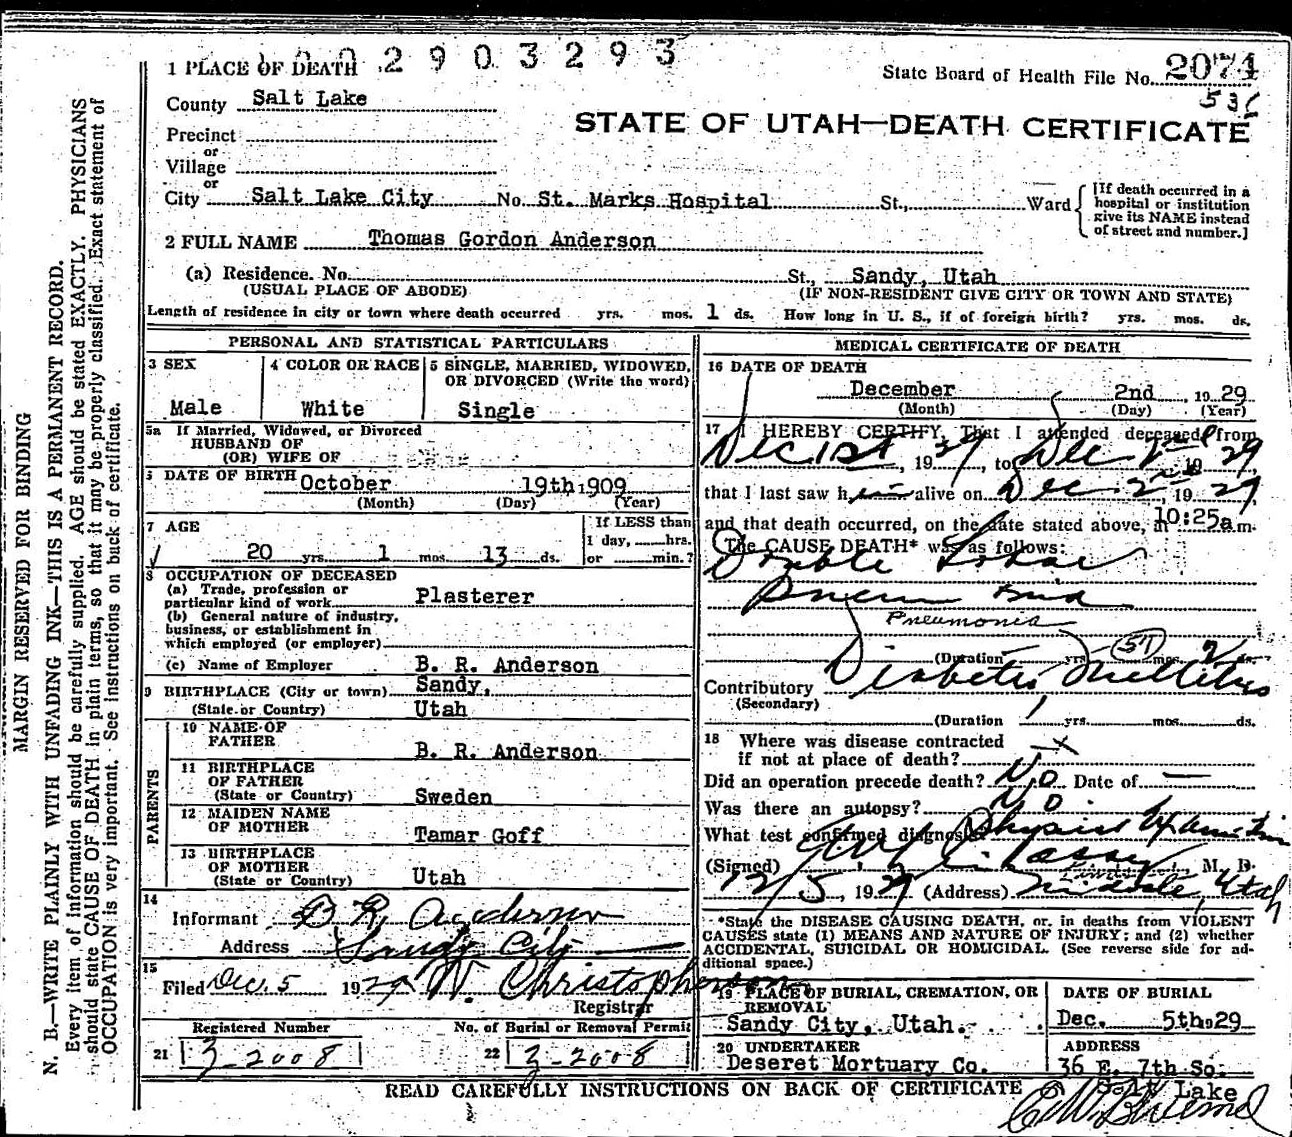 2 9 0 3 2 9 3
1 PLACE OF DEATH
State Board of Health File No. 2074
County Salt Lake
STATE OF UTAH—DEATH CERTIFICATE
Precinct
or
Village
or
City Salt Lake City No. St. Marks Hospital St., Ward
[If death occurred in a
hospital or institution
give its NAME instead
of street and number.]
2 FULL NAME Thomas Gordon Anderson
(a) Residence. No. St., Sandy, Utah
(USUAL PLACE OF ABODE) (IF NON-RESIDENT GIVE CITY OR TOWN AND STATE)
Length of residence in city or town where death occurred yrs. mos. 1 ds. How long in U. S., if of foreign birth? yrs. mos. ds.
PERSONAL AND STATISTICAL PARTICULARS
3 SEX
Male
4 COLOR OR RACE
White
5 SINGLE, MARRIED, WIDOWED,
OR DIVORCED (Write the word)
Single
5a If Married, Widowed, or Divorced
HUSBAND OF
(OR) WIFE OF
6 DATE OF BIRTH October 19th 1909
(Month) (Day) (Year)
7 AGE
20 yrs. 1 mos. 13 ds.
If LESS than
1 day, hrs.
or min.?
8 OCCUPATION OF DECEASED
(a) Trade, profession or
particular kind of work Plasterer
(b) General nature of industry,
business, or establishment in
which employed (or employer)
(c) Name of Employer B. R. Anderson
9 BIRTHPLACE (City or town) Sandy,
(State or Country) Utah
PARENTS
10 NAME OF
FATHER B. R. Anderson
11 BIRTHPLACE
OF FATHER
(State or Country) Sweden
12 MAIDEN NAME
OF MOTHER Tamar Goff
13 BIRTHPLACE
OF MOTHER
(State or Country) Utah
14
Informant B. R. Anderson
Address Sandy City
15
Filed Dec. 5 1929 W. Christopherson
Registrar
Registered Number No. of Burial or Removal Permit
21 3-2008 22 3-2008
MEDICAL CERTIFICATE OF DEATH
16 DATE OF DEATH
December 2nd, 1929
(Month) (Day) (Year)
17 I HEREBY CERTIFY, That I attended deceased from
Dec 1st, 1929, to Dec 2nd 1929
that I last saw him alive on Dec. 2nd, 1929
and that death occurred, on the date stated above, at 10:25a.m.
The CAUSE DEATH* was as follows:
Double Lobar
Pneumonia
Pneumonia
(Duration yrs. mos. 2 ds.
Contributory Diabetes Mellitus
(Secondary)
(Duration 1 yrs. mos. ds.
18 Where was disease contracted
if not at place of death?
Did an operation precede death? No Date of —
Was there an autopsy? No
What test confirmed diagnosis?
(Signed) M. D.
12/5, 1929 (Address) Midvale, Utah
*State the DISEASE CAUSING DEATH, or, in deaths from VIOLENT
CAUSES state (1) MEANS AND NATURE OF INJURY; and (2) whether
ACCIDENTAL, SUICIDAL OR HOMICIDAL. (See reverse side for ad-
ditional space.)
19 PLACE OF BURIAL, CREMATION, OR
REMOVAL
Sandy City, Utah.
DATE OF BURIAL
Dec. 5th 1929
20 UNDERTAKER
Deseret Mortuary Co.
ADDRESS
36 E. 7th So.
Salt Lake
READ CAREFULLY INSTRUCTIONS ON BACK OF CERTIFICATE
MARGIN RESERVED FOR BINDING
N. B.—WRITE PLAINLY WITH UNFADING INK—THIS IS A PERMANENT RECORD.
Every item of information should be carefully supplied. AGE should be stated EXACTLY. PHYSICIANS
should state CAUSE OF DEATH in plain terms, so that it may be properly classified. Exact statement of
OCCUPATION is very important. See instructions on back of certificate.